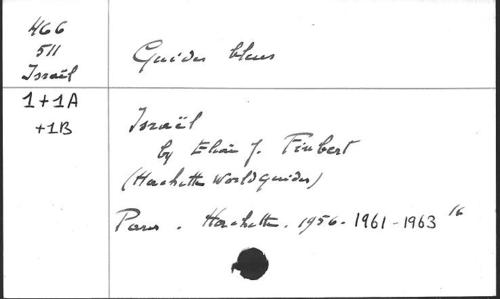 466
511
Israël
Guides bleus
1+1A
+1B
Israël
by Elian J. Finbert
(Hachette World Guides)
Paris. Hachette. 1956-1961-1963 16